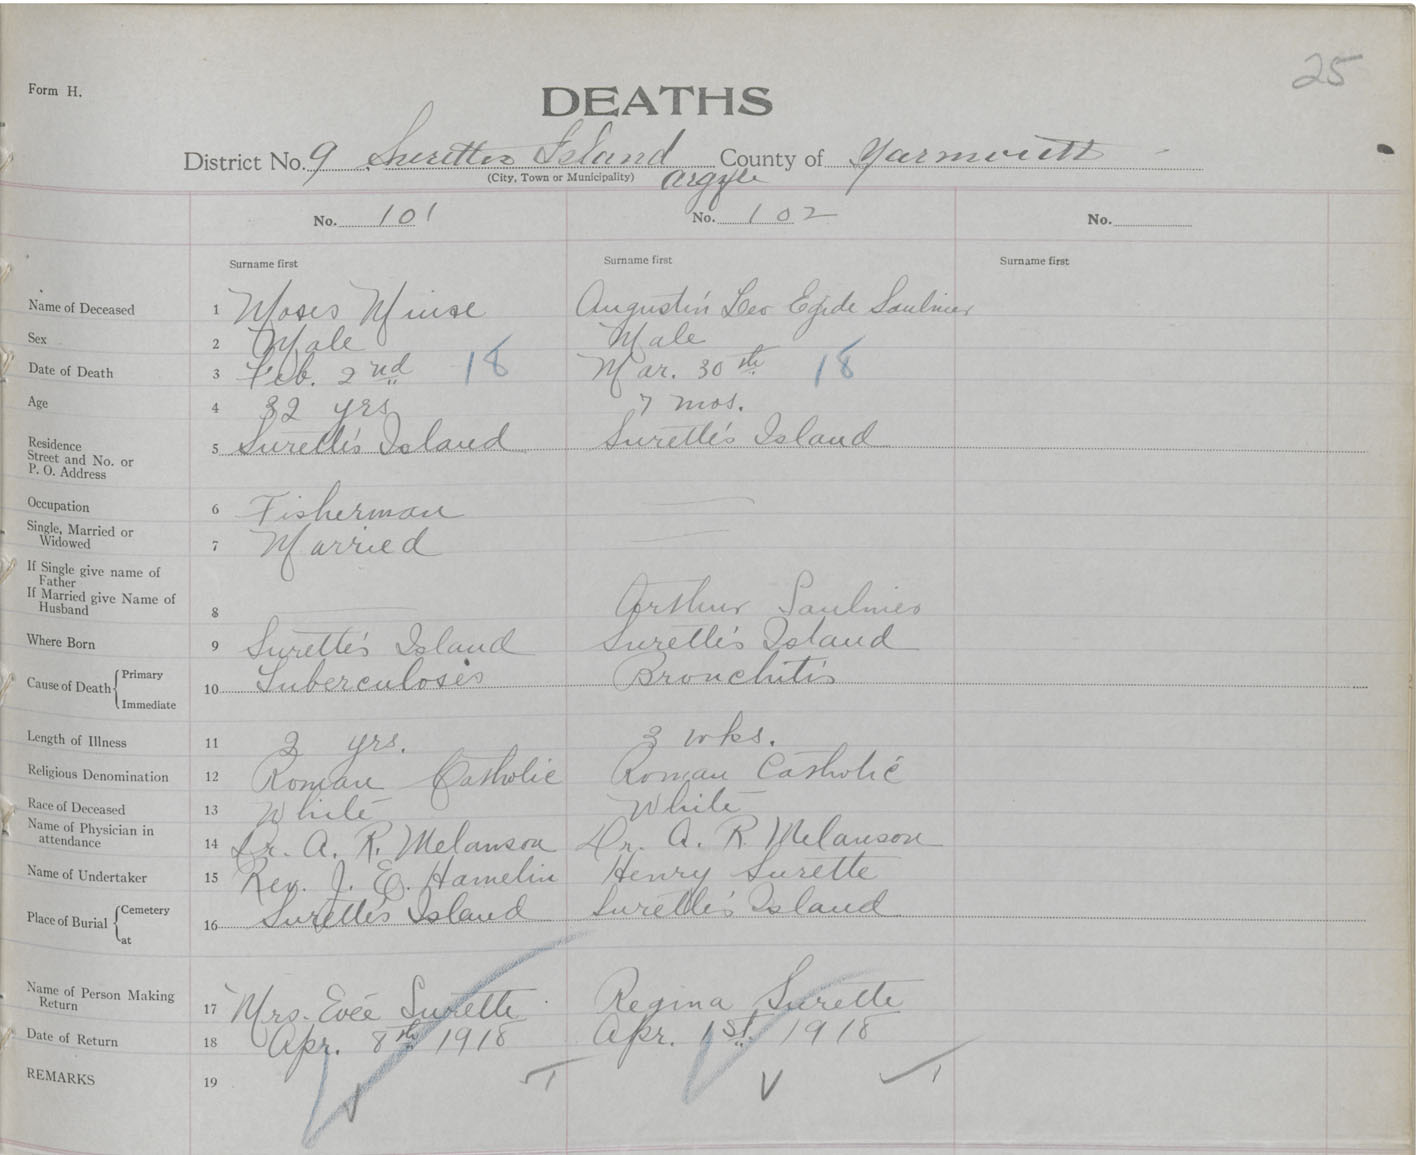 25
Form H.
DEATHS
District No. 9 Surettes Island County of Yarmouth
(City, Town or Municipality) Argyle
No. 101 No. 102 No.
Surname first Surname first Surname first
Name of Deceased 1 Moses Muise Augustin Leo Egide Saulnier
Sex 2 Male Male
Date of Death 3 Feb. 2nd 18 Mar. 30th 18
Age 4 32 yrs 7 mos.
Residence
Street and No. or
P. O. Address 5 Surette's Island Surette's Island
Occupation 6 Fisherman
Single, Married or
Widowed 7 Married
If Single give name of
Father
If Married give Name of
Husband 8 Arthur Saulnier
Where Born 9 Surette's Island Surette's Island
Cause of Death { Primary
Immediate 10 Tuberculosis Bronchitis
Length of Illness 11 2 yrs. 3 wks.
Religious Denomination 12 Roman Catholic Roman Catholic
Race of Deceased 13 White White
Name of Physician in
attendance 14 Dr. A. R. Melanson Dr. A. R. Melanson
Name of Undertaker 15 Rev. J. E. Hamelin Henry Surette
Place of Burial { Cemetery
at 16 Surette's Island Surette's Island
Name of Person Making
Return 17 Mrs. Evée Surette Regina Surette
Date of Return 18 Apr. 8th 1918 Apr. 1st. 1918
REMARKS 19